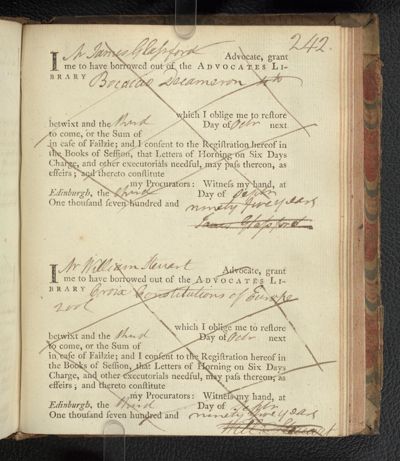 242.
I Mr James Glassford Advocate, grant
me to have borrowed out of the ADVOCATES LI-
BRARY Bocalas Decameron 4to
which I oblige me to restore
betwixt and the third Day of Octr next
to come, or the Sum of
in case of Failzie; and I consent to the Registration hereof in
the Books of Session, that Letters of Horning on Six Days
Charge, and other executorials needful, may pass thereon, as
effeirs; and thereto constitute
my Procurators: Witness my hand, at
Edinburgh, the third Day of
One thousand seven hundred and ninety five years
James Glassford
I Mr William Steuart Advocate, grant
me to have borrowed out of the ADVOCATES LI-
BRARY Croix Constitutions of Europe
2 vols
which I oblige me to restore
betwixt and the third Day of Octr next
to come, or the Sum of
in case of Failzie; and I consent to the Registration hereof in
the Books of Session, that Letters of Horning on Six Days
Charge, and other executorials needful, may pass thereon, as
effeirs; and thereto constitute
my Procurators: Witness my hand, at
Edinburgh, the third Day of
One thousand seven hundred and ninety five years
William Steuart